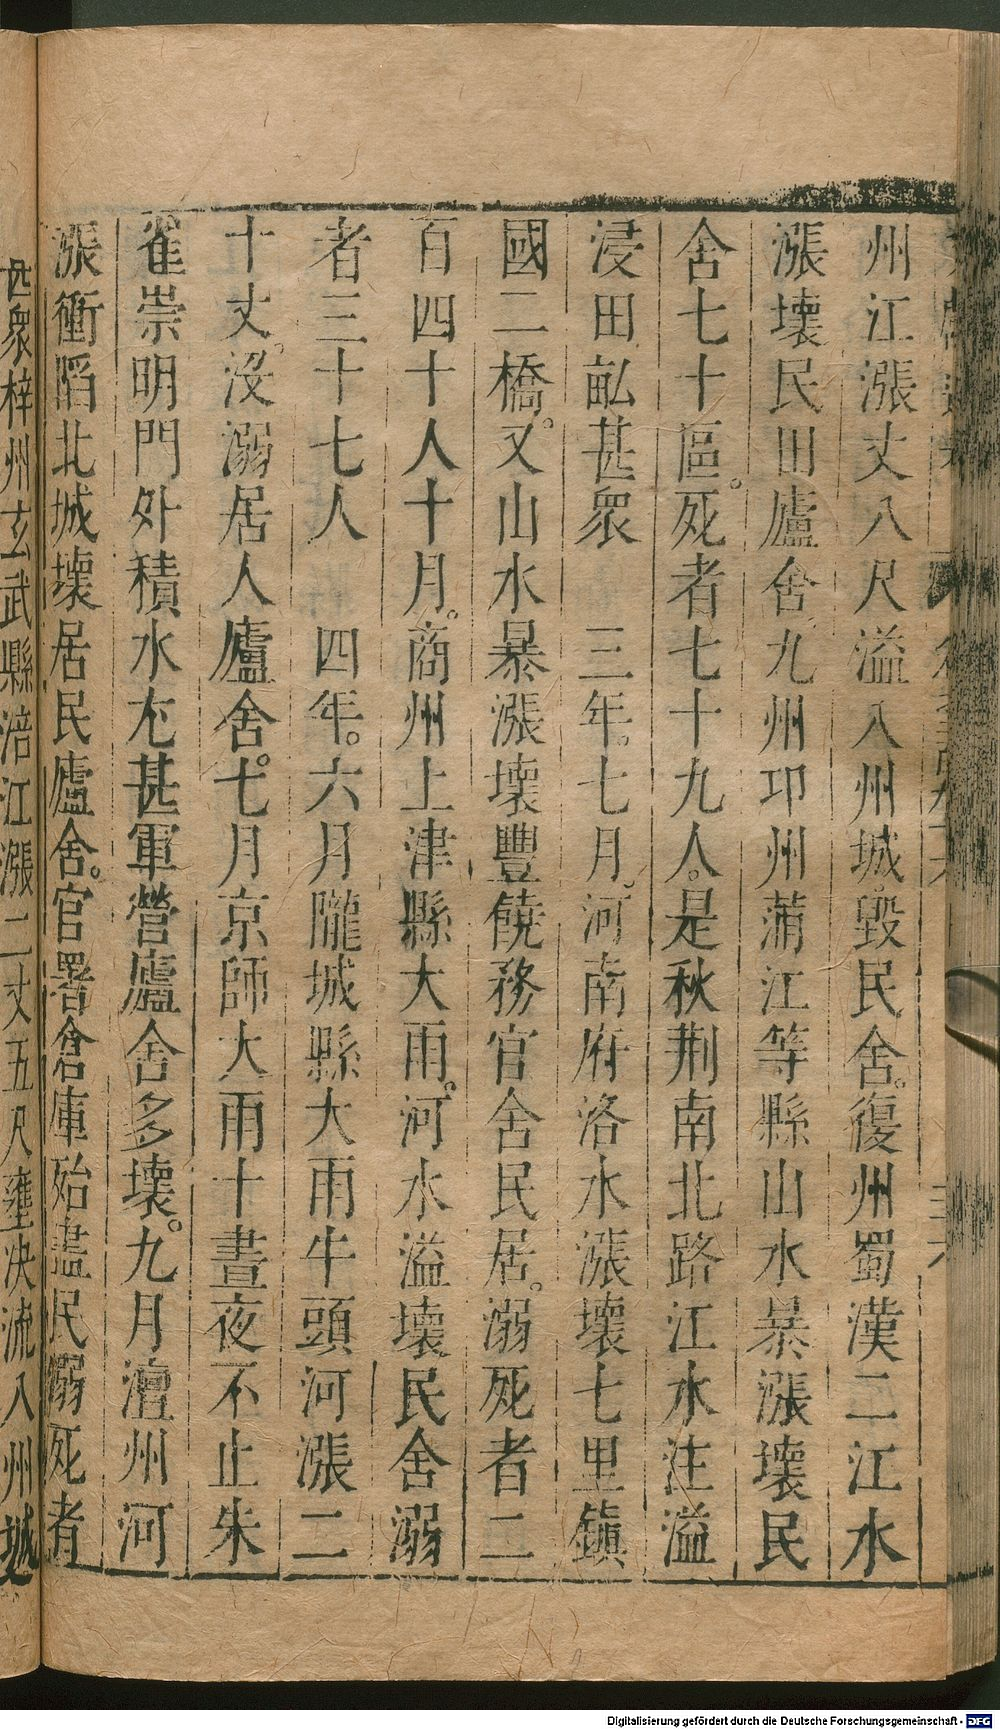 州江漲丈八尺溢入州城毀民舍。復州蜀漢二江水
漲壞民田廬舍九州卭州蒲江等縣山水暴漲壞民
舍七十區。死者七十九人。是秋荆南北路江水注溢
浸田畝甚衆　三年。七月。河南府洛水漲壞七里鎮
國二橋。又山水暴漲壞豐饒務官舍民居。溺死者二
百四十人十月。商州上津縣大雨。河水溢壞民舍溺
者三十七人　四年。六月隴城縣大雨牛頭河漲二
十丈。沒溺居人廬舍。七月京師大雨十晝夜不止朱
雀崇明門外積水尢甚軍營廬舍多壞。九月澶州河
漲衝陷北城壞居民廬舍。官署倉庫殆盡民溺死者
衆梓州玄武縣涪江漲二丈五尺壅決流入州城
Digitalisierung gefördert durch die Deutsche Forschungsgemeinschaft - DFG